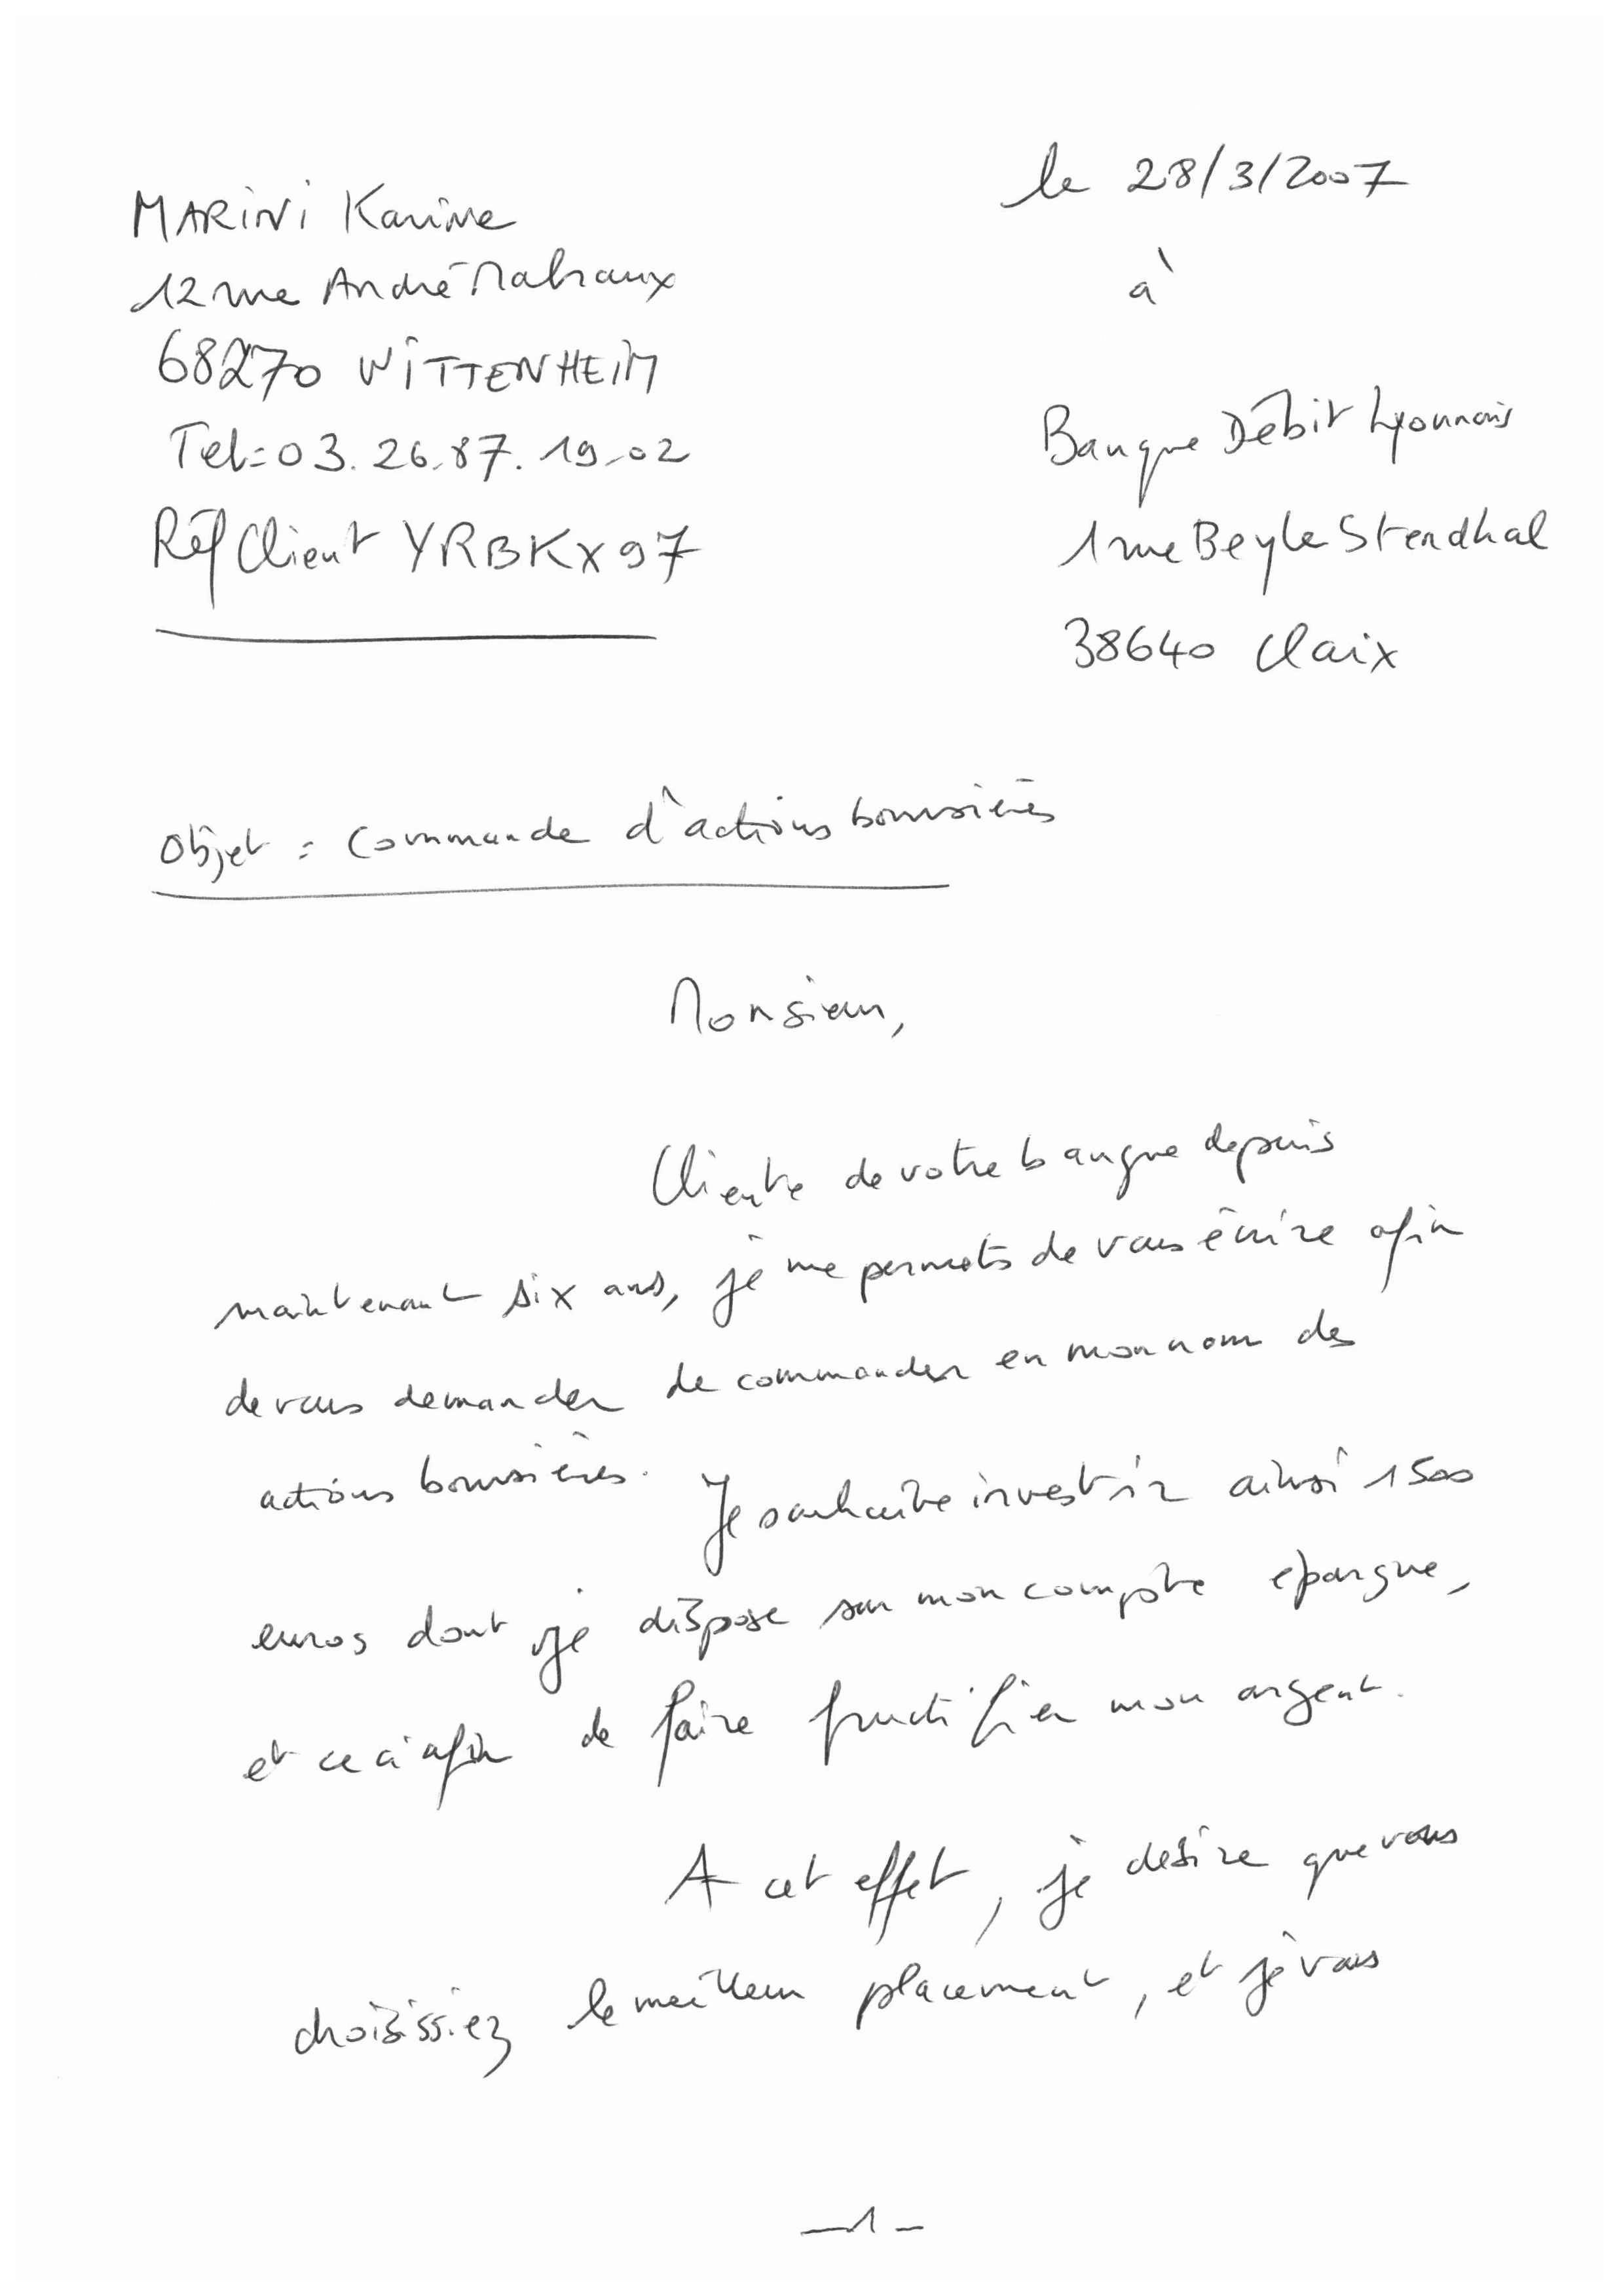 le 28/3/2007
MARINI Karine
12 rue André Malraux
68270 WITTENHEIM
Tel: 03.26.87.19.02
Réf Client YRBKX97
à
Banque Débit Lyonnais
1 rue Beyle Stendhal
38640 Claix
Objet : Commande d'actions boursières
Monsieur,
Cliente de votre banque depuis
maintenant six ans, je me permets de vous écrire afin
de vous demander de commander en mon nom des
actions boursières. Je souhaite investir ainsi 1500
euros dont je dispose sur mon compte epargne,
et ceci afin de faire fructifier mon argent.
A cet effet, je desire que vous
choisissiez le meilleur placement, et je vous
-1-